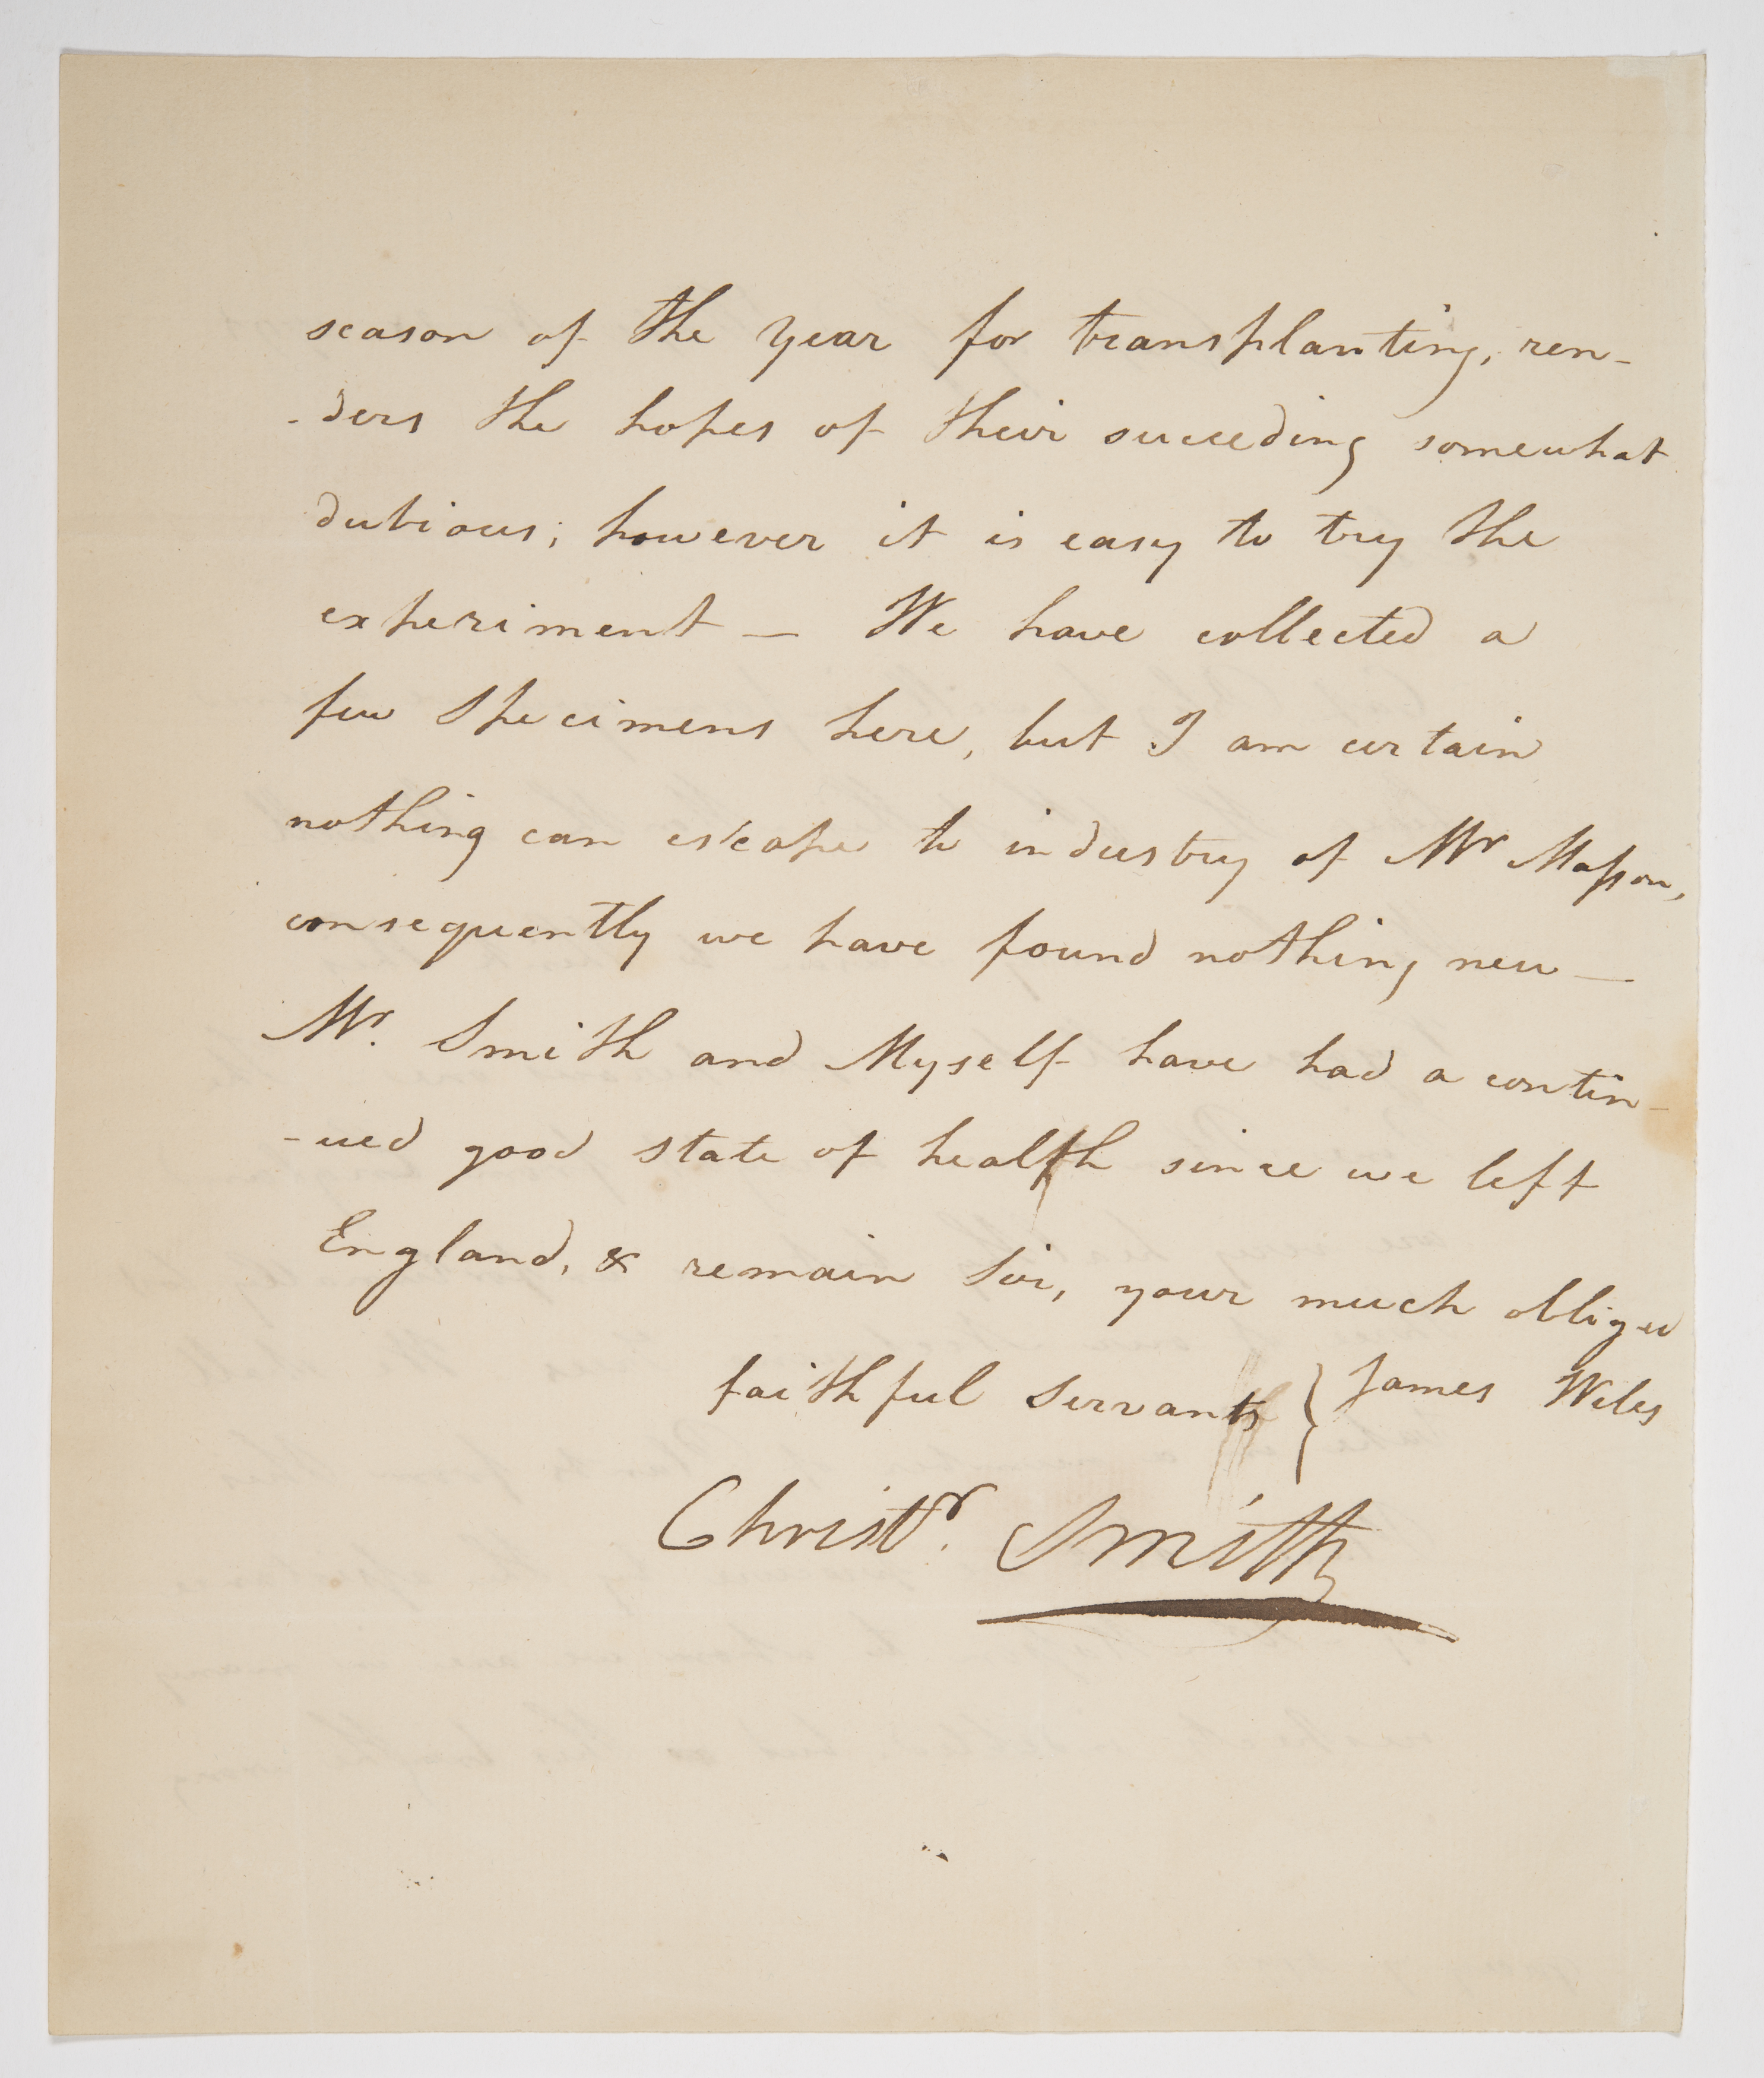 season of the Year for transplanting, ren-
-ders the hopes of their succeeding somewhat
dubious; however it is easy to try the
experiment — We have collected a
few Specimens here, but I am certain
nothing can escape te industry of Mr Masson,
consequently we have found nothing new —
Mr. Smith and Myself have had a contin-
-ued good state of health since we left
England, & remain Sir, your much obliged
faithful Servants } James Wiles
Christr. Smith